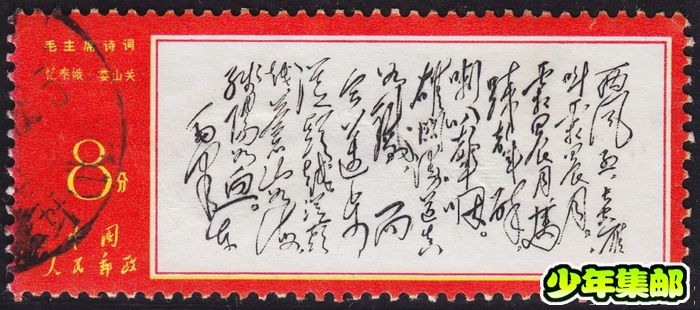 毛主席诗词
忆秦娥·娄山关
8分
中国
人民邮政
西风烈长空雁
叫霜晨月。
霜晨月马
蹄声碎
喇叭声咽。
雄关漫道真
如铁而
今迈步
从头越从头
越苍山如海
残阳如血。
毛泽东
少年集邮